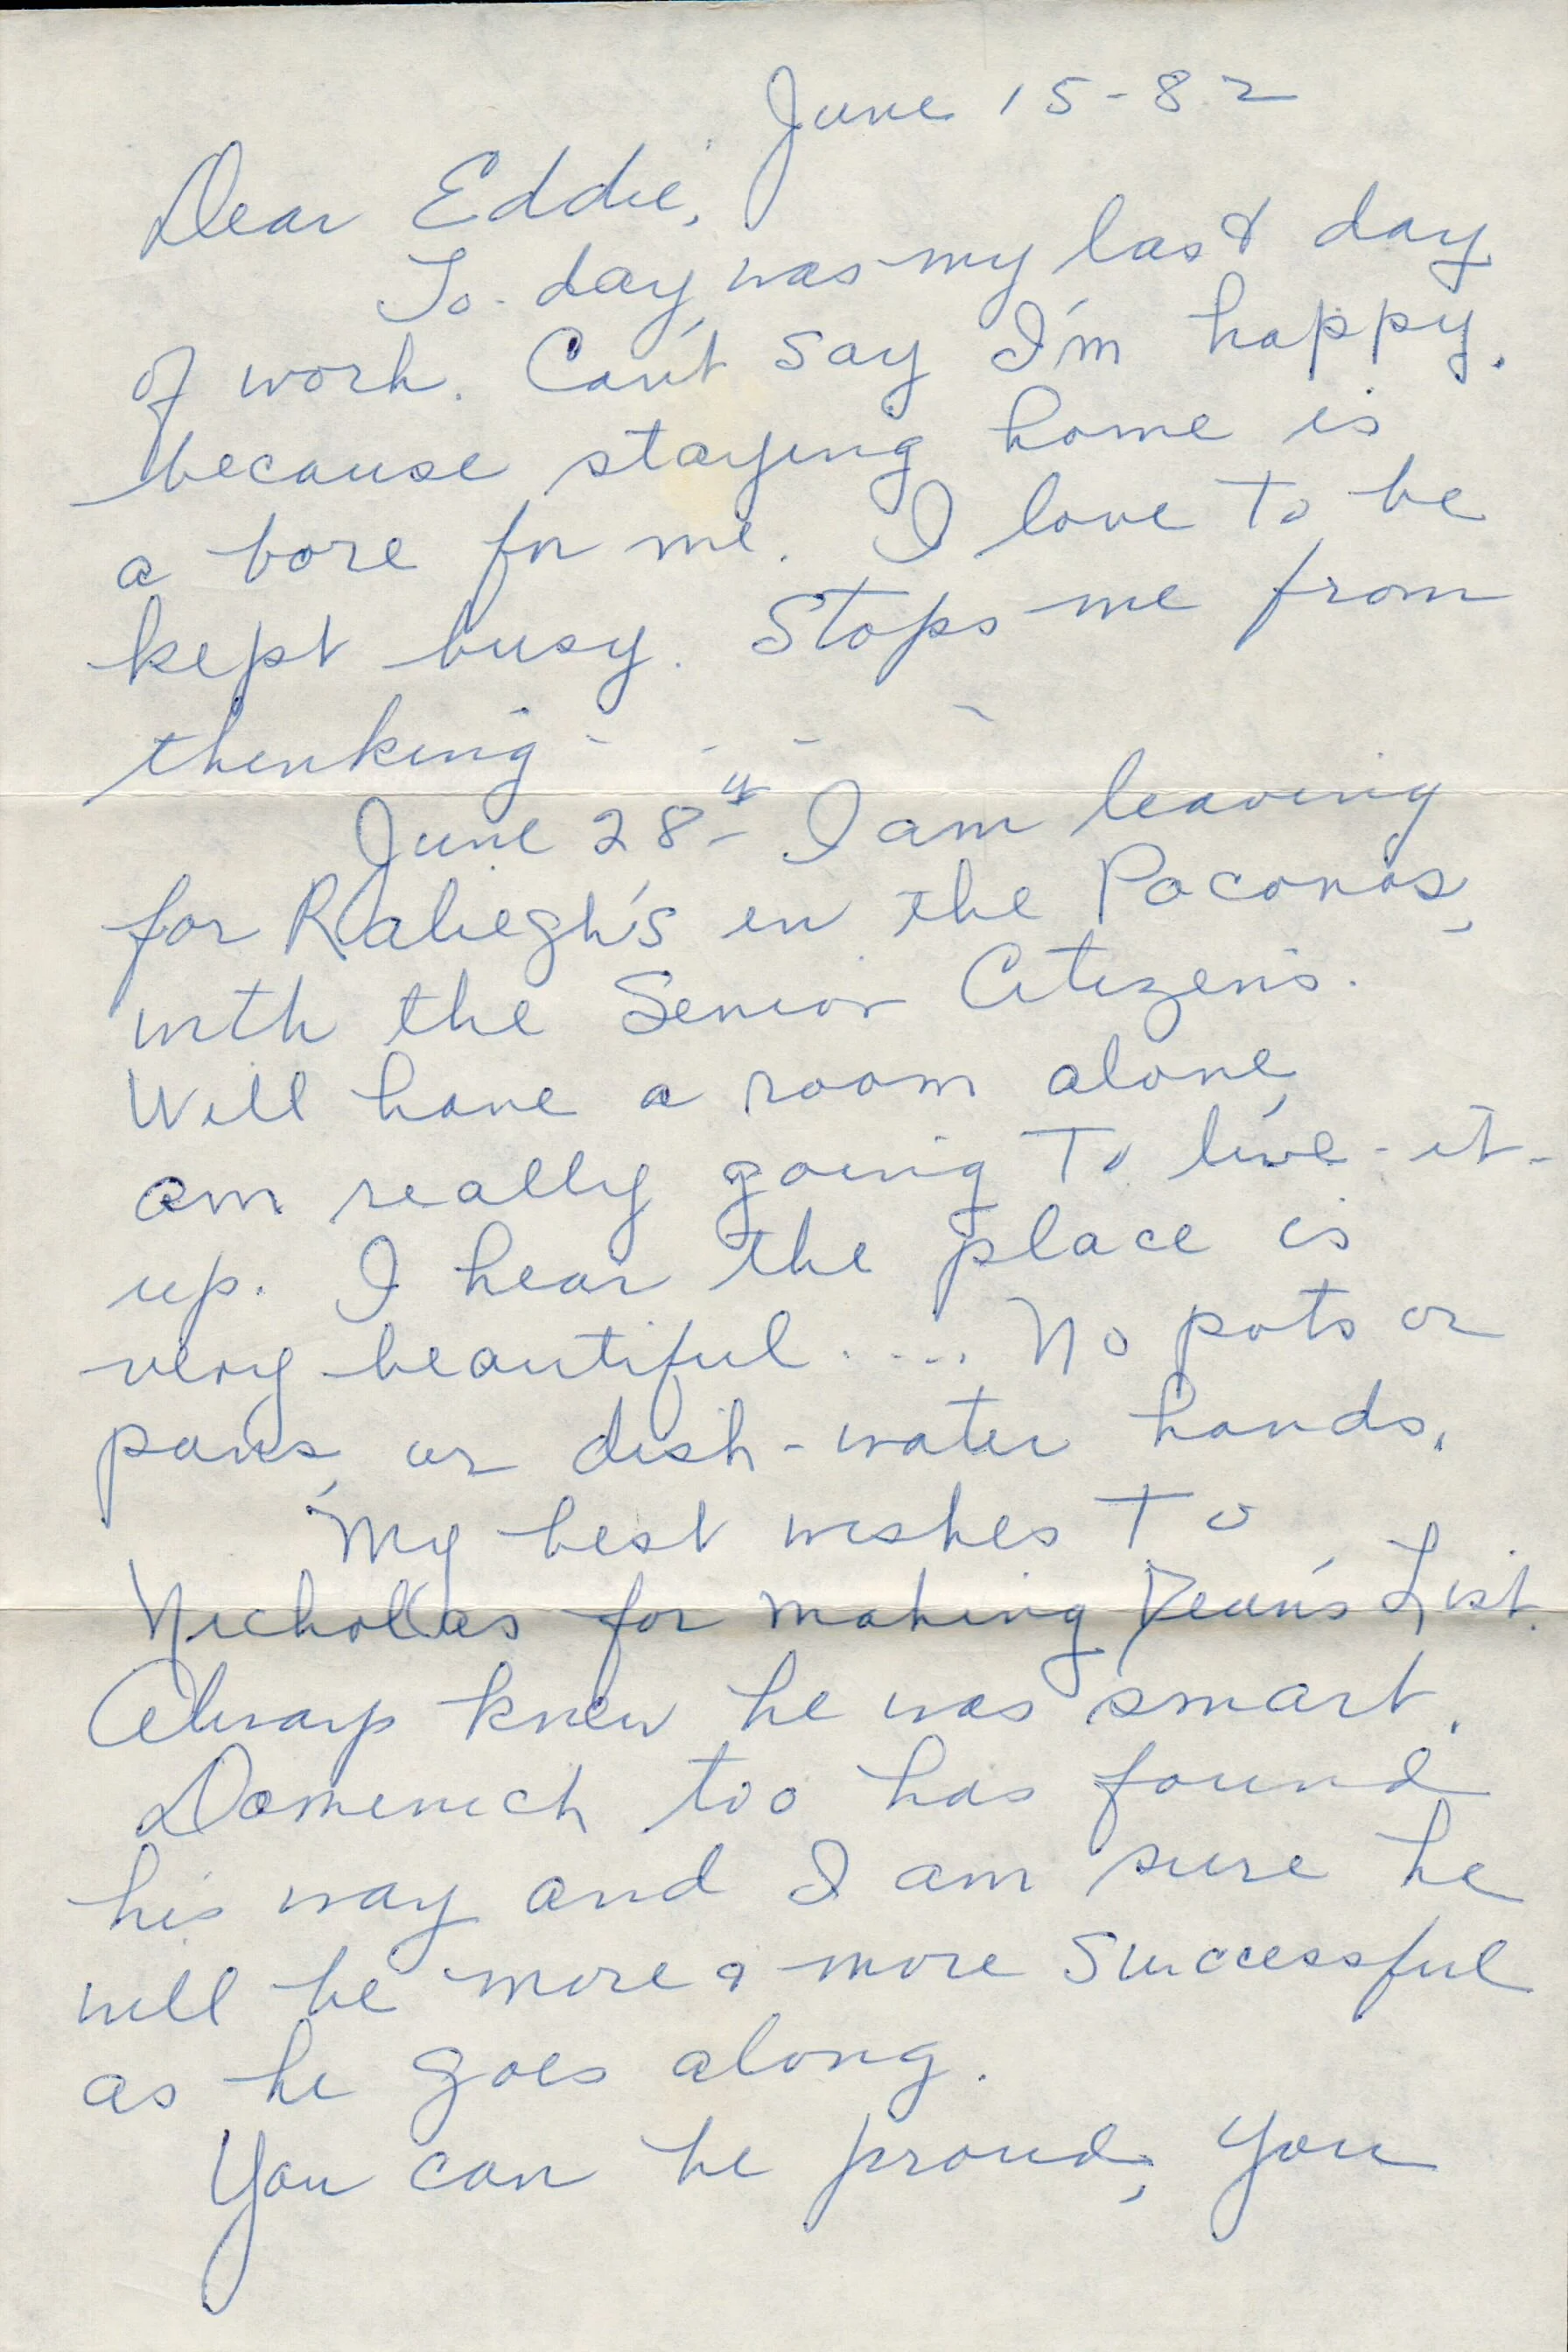 June 15-82
Dear Eddie,
To-day, was my last day
of work. Can't say I'm happy.
because staying home is
a bore for me. I love to be
kept busy. Stops me from
thinking - - - -
June 28th I am leaving
for Raliegh's in the Poconos,
with the Senior Citizens.
Will have a room alone,
am really going to live-it-
up. I hear the place is
very beautiful..... No pots or
pans, or dish-water hands.
My best wishes to
for making Dean's List.
Always knew he was smart.
Domenich too has found
his way and I am sure he
will be more & more successful
as he goes along.
You can be proud, you